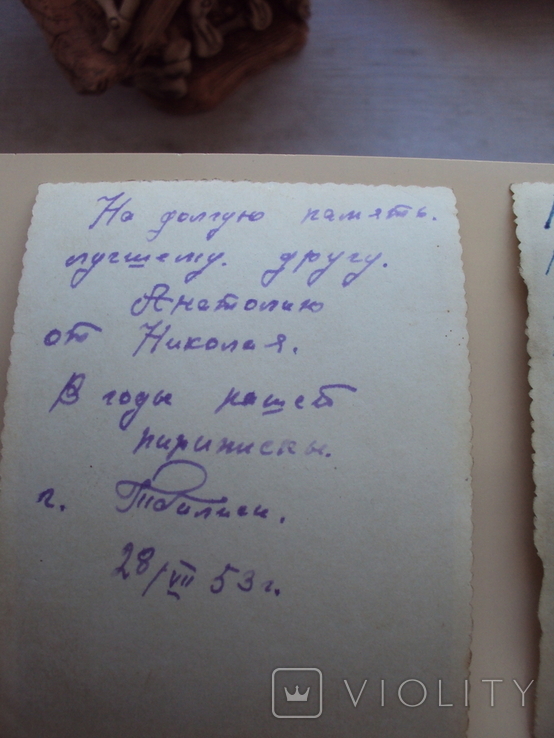 На долгую память.
лучшему. другу.
Анатолию
от Николая.
В годы нашей
пириписки.
г. Тбилиси.
28/VII 53 г.
VIOLITY